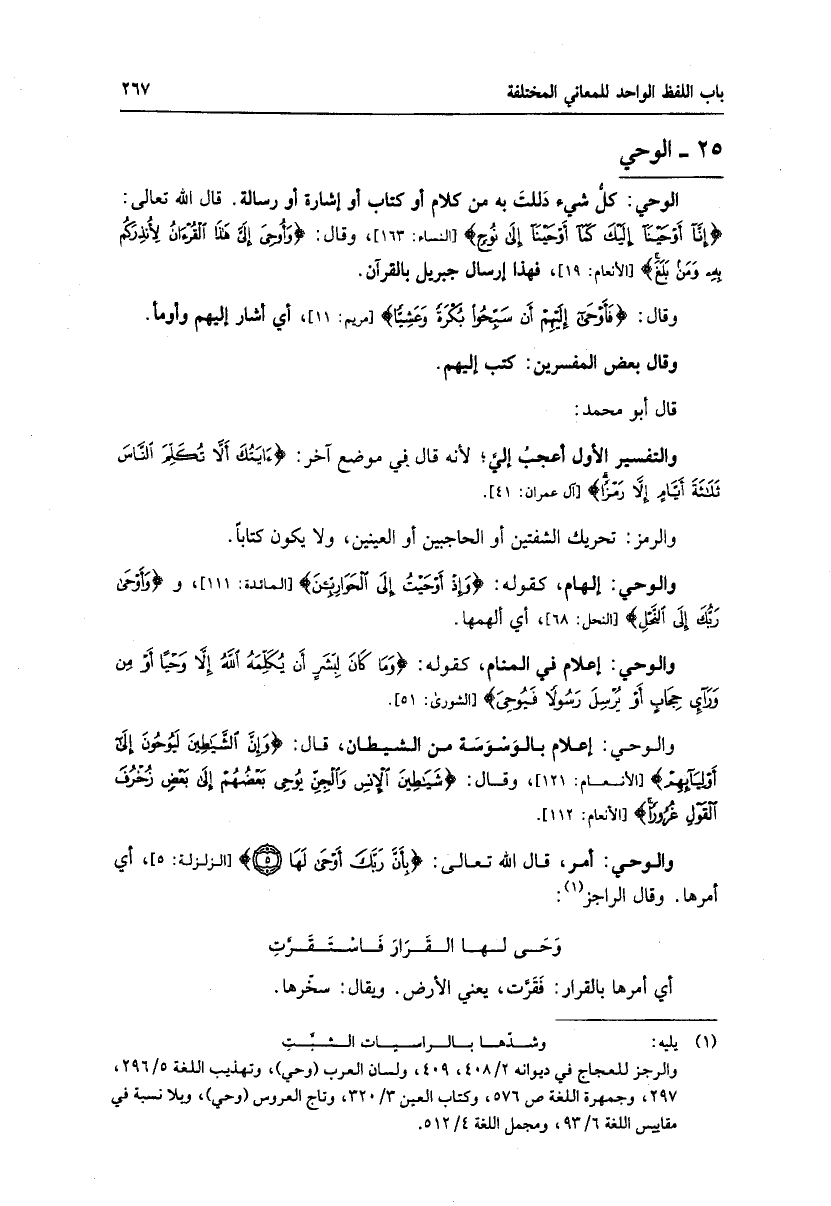 باب اللفظ الواحد للمعاني المختلفة ٢٦٧
٢٥ ـ الوحي
الوحي: كلُّ شيء دَللتَ به من كلام أو كتاب أو إشارة أو رسالة. قال الله تعالى:
﴿إِنَّآ أَوْحَيْنَآ إِلَيْكَ كَمَآ أَوْحَيْنَآ إِلَىٰ نُوحٍ﴾ [النساء: ١٦٣]، وقال: ﴿وَأُوحِىَ إِلَىَّ هَٰذَا ٱلْقُرْءَانُ لِأُنذِرَكُم
بِهِۦ وَمَنۢ بَلَغَۚ﴾ [الأنعام: ١٩]، فهذا إرسال جبريل بالقرآن.
وقال: ﴿فَأَوْحَىٰٓ إِلَيْهِمْ أَن سَبِّحُوا۟ بُكْرَةً وَعَشِيًّا﴾ [مريم: ١١]، أي أشار إليهم وأومأ.
وقال بعض المفسرين: كتب إليهم.
قال أبو محمد:
والتفسير الأول أعجبُ إليَّ؛ لأنه قال في موضع آخر: ﴿ءَايَتُكَ أَلَّا تُكَلِّمَ ٱلنَّاسَ
ثَلَٰثَةَ أَيَّامٍ إِلَّا رَمْزًاۗ﴾ [آل عمران: ٤١].
والرمز: تحريك الشفتين أو الحاجبين أو العينين، ولا يكون كتاباً.
والوحي: إلهام، كقوله: ﴿وَإِذْ أَوْحَيْتُ إِلَى ٱلْحَوَارِيِّۦنَ﴾ [المائدة: ١١١]، و ﴿وَأَوْحَىٰ
رَبُّكَ إِلَى ٱلنَّحْلِ﴾ [النحل: ٦٨]، أي ألهمها.
والوحي: إعلام في المنام، كقوله: ﴿وَمَا كَانَ لِبَشَرٍ أَن يُكَلِّمَهُ ٱللَّهُ إِلَّا وَحْيًا أَوْ مِن
وَرَآئِ حِجَابٍ أَوْ يُرْسِلَ رَسُولًا فَيُوحِىَ﴾ [الشورىٰ: ٥١].
والوحي: إعلام بالوَسْوَسَة من الشيطان، قال: ﴿وَإِنَّ ٱلشَّيَٰطِينَ لَيُوحُونَ إِلَىٰٓ
أَوْلِيَآئِهِمْ﴾ [الأنعام: ١٢١]، وقال: ﴿شَيَٰطِينَ ٱلْإِنسِ وَٱلْجِنِّ يُوحِى بَعْضُهُمْ إِلَىٰ بَعْضٍ زُخْرُفَ
ٱلْقَوْلِ غُرُورًاۚ﴾ [الأنعام: ١١٢].
والوحي: أمر، قال الله تعالى: ﴿بِأَنَّ رَبَّكَ أَوْحَىٰ لَهَا ۝٥﴾ [الزلزلة: ٥]، أي
أمرها. وقال الراجز(١):
وَحَى لها القَرَارَ فَاسْتَقَرَّتِ
أي أمرها بالقرار: فَقَرَّت، يعني الأرض. ويقال: سخّرها.
(١) يليه: وشدّها بالراسيات الثبَّتِ
والرجز للعجاج في ديوانه ٤٠٨/٢، ٤٠٩، ولسان العرب (وحي)، وتهذيب اللغة ٢٩٦/٥،
٢٩٧، وجمهرة اللغة ص ٥٧٦، وكتاب العين ٣٢٠/٣، وتاج العروس (وحي)، وبلا نسبة في
مقاييس اللغة ٩٣/٦، ومجمل اللغة ٥١٢/٤.